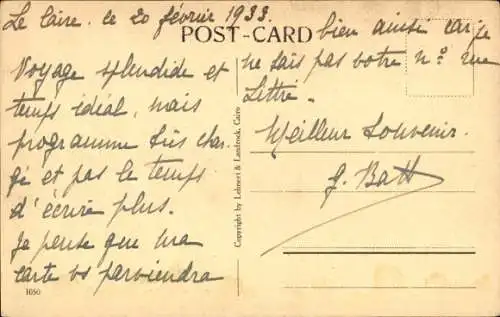 Le Caire. ce 20 février 1933.
POST-CARD
Voyage splendide et
temps idéal, mais
programme très char-
gé et pas le temps
d'écrire plus.
Je pense que ma
carte vs parviendra
bien ainsi car je
ne sais pas votre nº rue
Littré.
Meilleur souvenir.
G. Batt
Copyright by Lehnert & Landrock, Cairo
1050